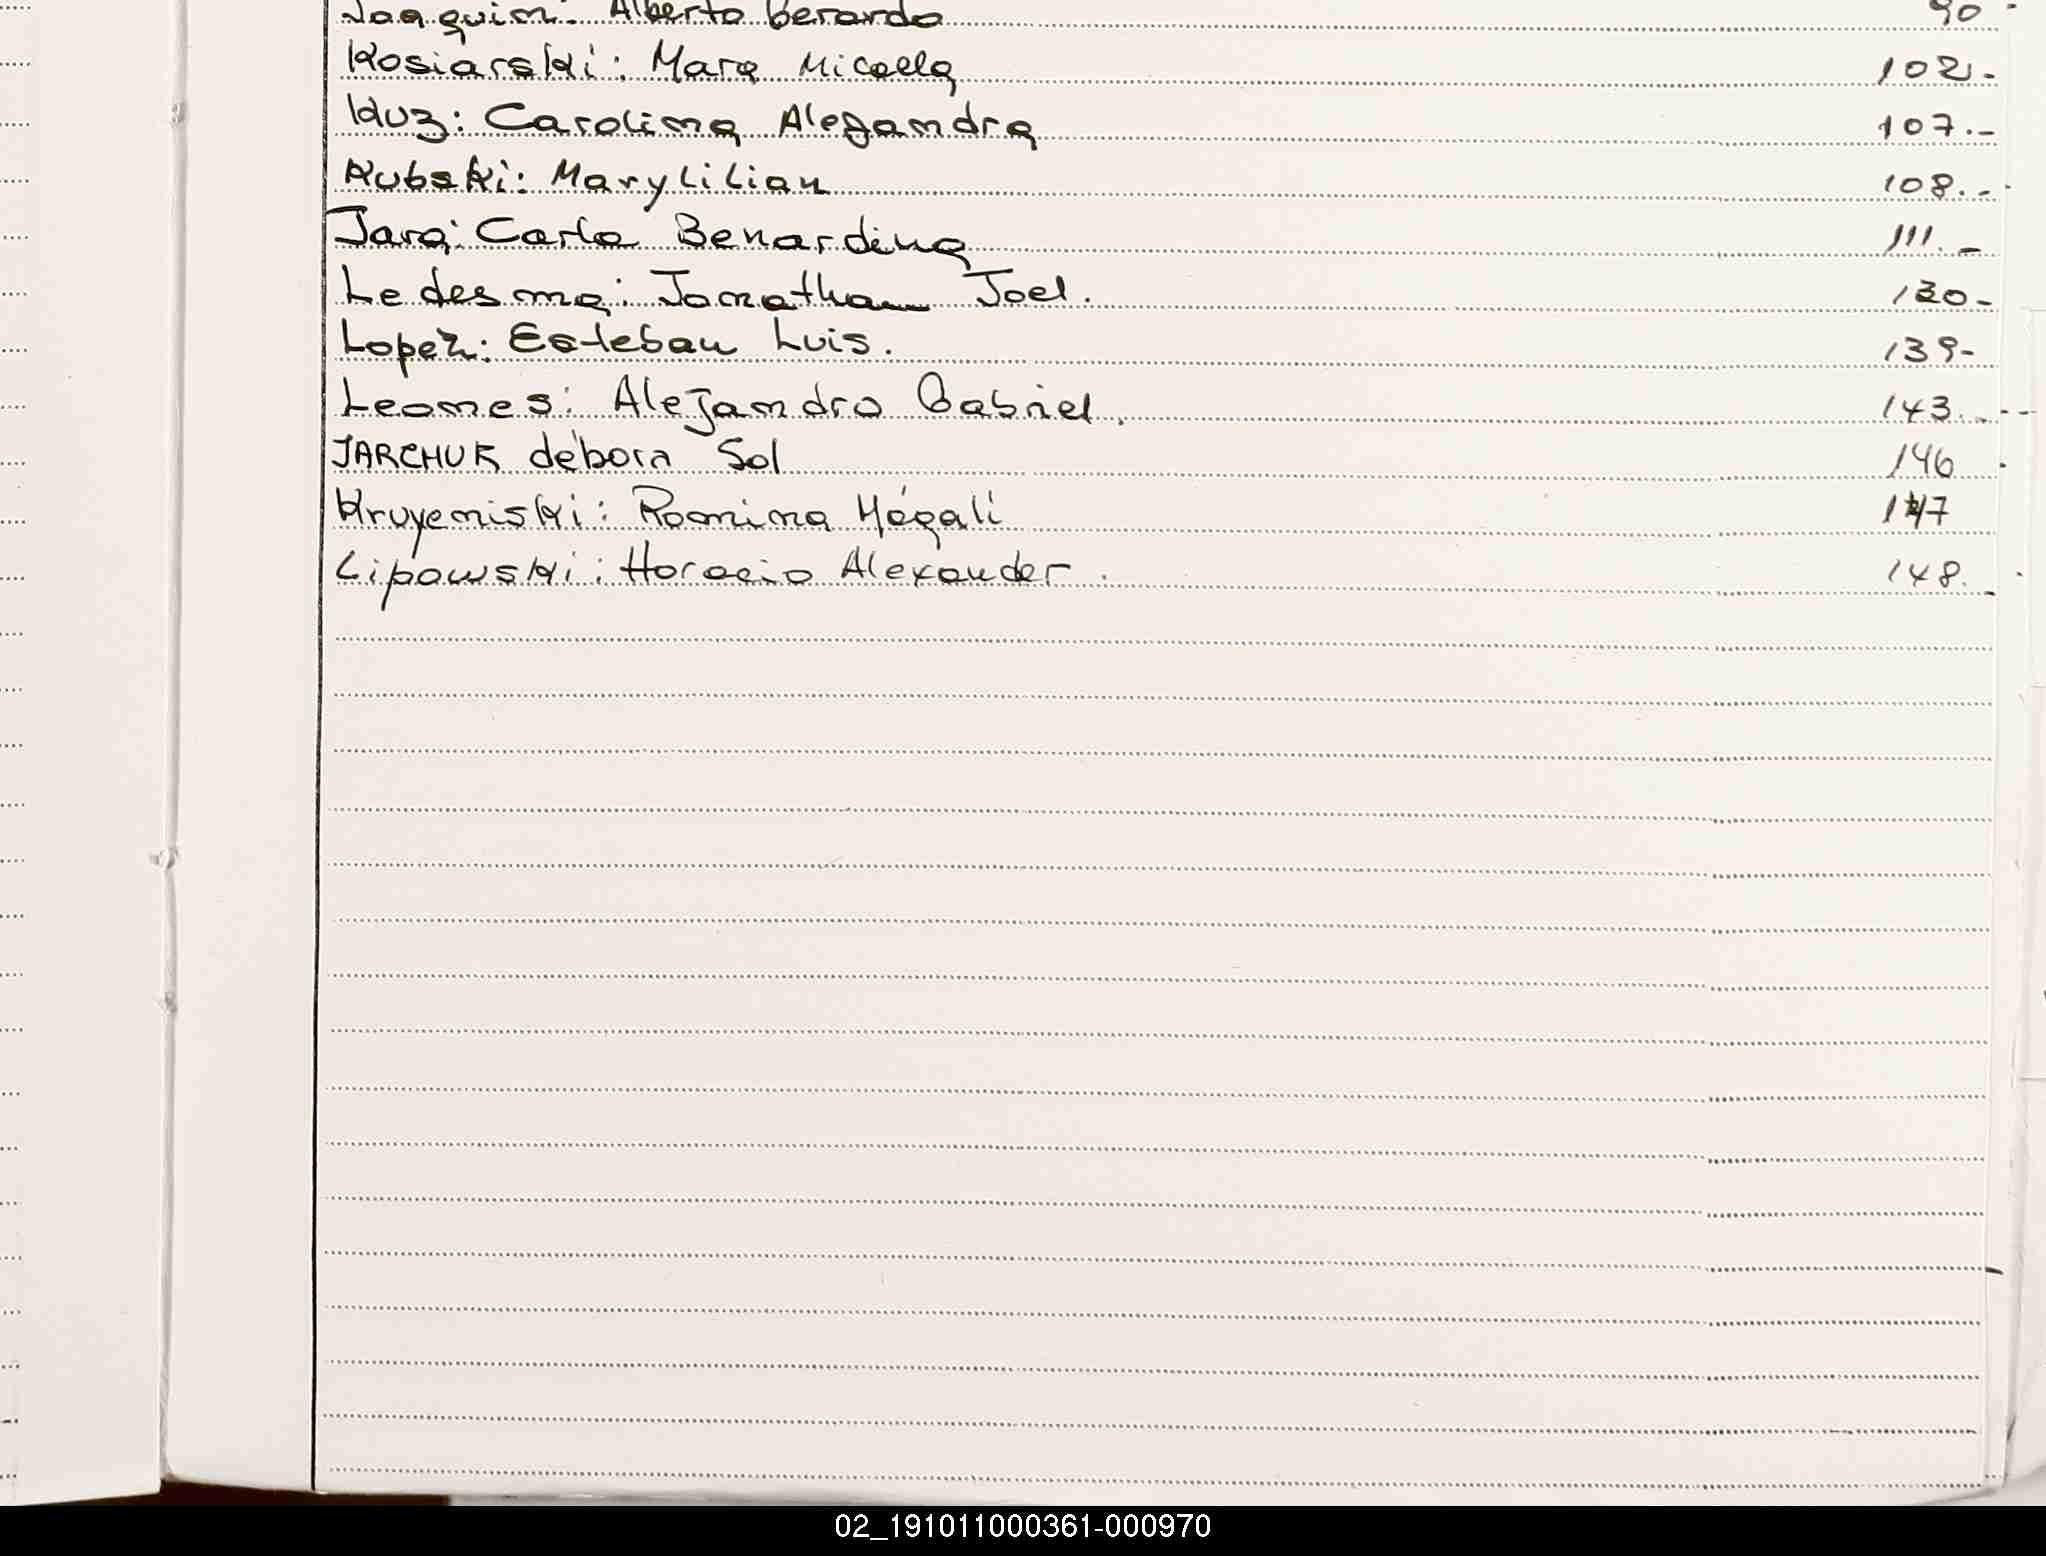 Joaquim: Alberto Berardo 90
Kosiarski: Mara Micaela 102.-
Kuz: Carolina Alejandra 107.-
Kubski: Mary Lilian 108.-
Jara: Carla Benardina 111.-
Ledesma: Jonathan Joel. 130-
Lopez: Esteban Luis. 139-
Leones: Alejandro Gabriel. 143.-
JARCHUK débora Sol 146
Kruyeniski: Romina Mágali 147
Lipowski: Horacio Alexander. 148.
02_191011000361-000970